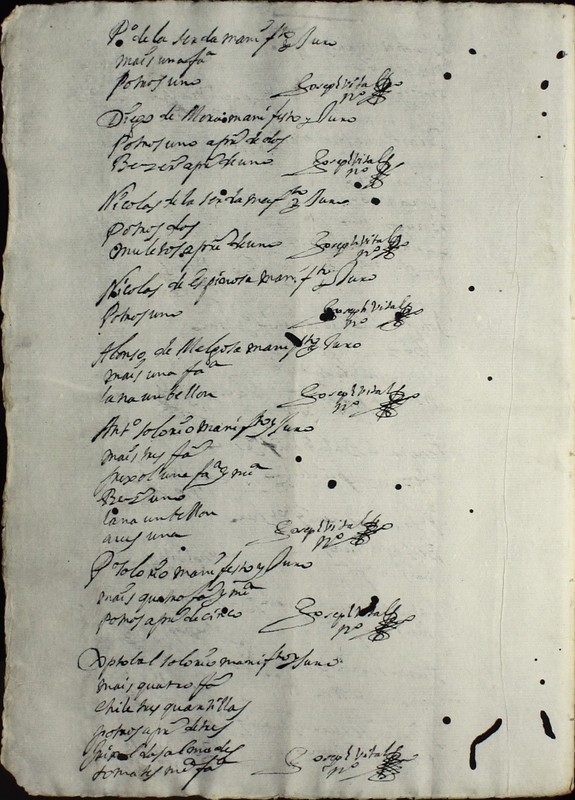 P.o de la serda manif.to y Juro
mais una fa
Potros uno
Joseph Vidal
n.o
Diego de Mora manifesto y Juro
Potros uno apre de dos
Bezerr apre de uno
Joseph Vidal
n.o
Nicolas de la serda manif.to y Juro
Potros dos
muletos apre de uno
Joseph Vidal
n.o
Nicolas de espinosa manif.to y Juro
Potros uno
Joseph Vidal
n.o
Alonso de Melgosa manif.to y Juro
mais una fa
lana un bellon
Joseph Vidal
n.o
Ant.o solorio manif.to y Juro
mais tres fa
frixol una fa y ma
Bezerr uno
lana un bellon
aves una
Joseph Vidal
n.o
P.o solorio manifesto y Juro
mais quatro fa y ma
potros apre de cinco
Joseph Vidal
n.o
Xptobal solorio manif.to y Juro
mais quatro fa
chile tres quartillas
potros apre de tres
frixol dos almudes
tomates ma fa
Joseph Vidal
n.o